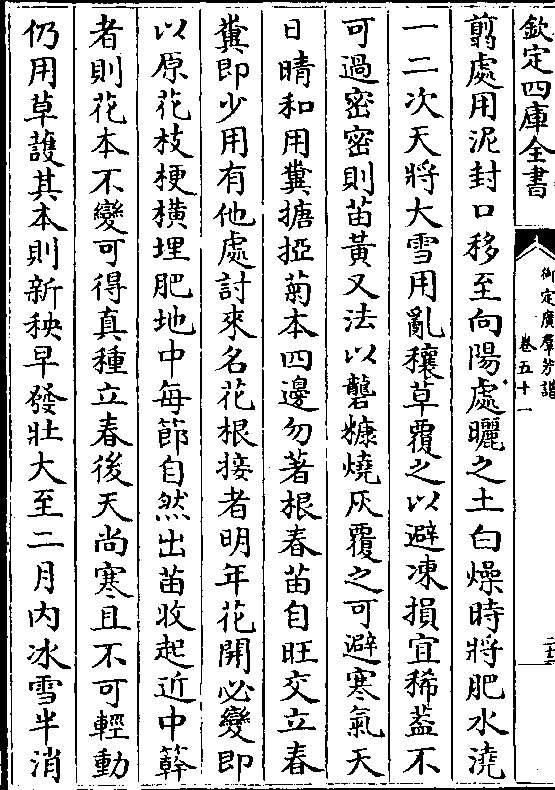 欽定四庫全書
御定廣羣芳譜
卷五十一
翦處用泥封口移至向陽處曬之土白燥時將肥水澆
一二次天將大雪用亂穰草覆之以避凍損宜稀葢不
可過密密則苗黃又法以礱糠燒灰覆之可避寒氣天
日晴和用糞搪挜菊本四邊勿著根春苗自旺交立春
糞即少用有他處討來名花根接者明年花開必變即
以原花枝梗橫埋肥地中每節自然出苗收起近中簳
者則花本不變可得真種立春後天尚寒且不可輕動
仍用草䕶其本則新秧早發壯大至二月內冰雪半消